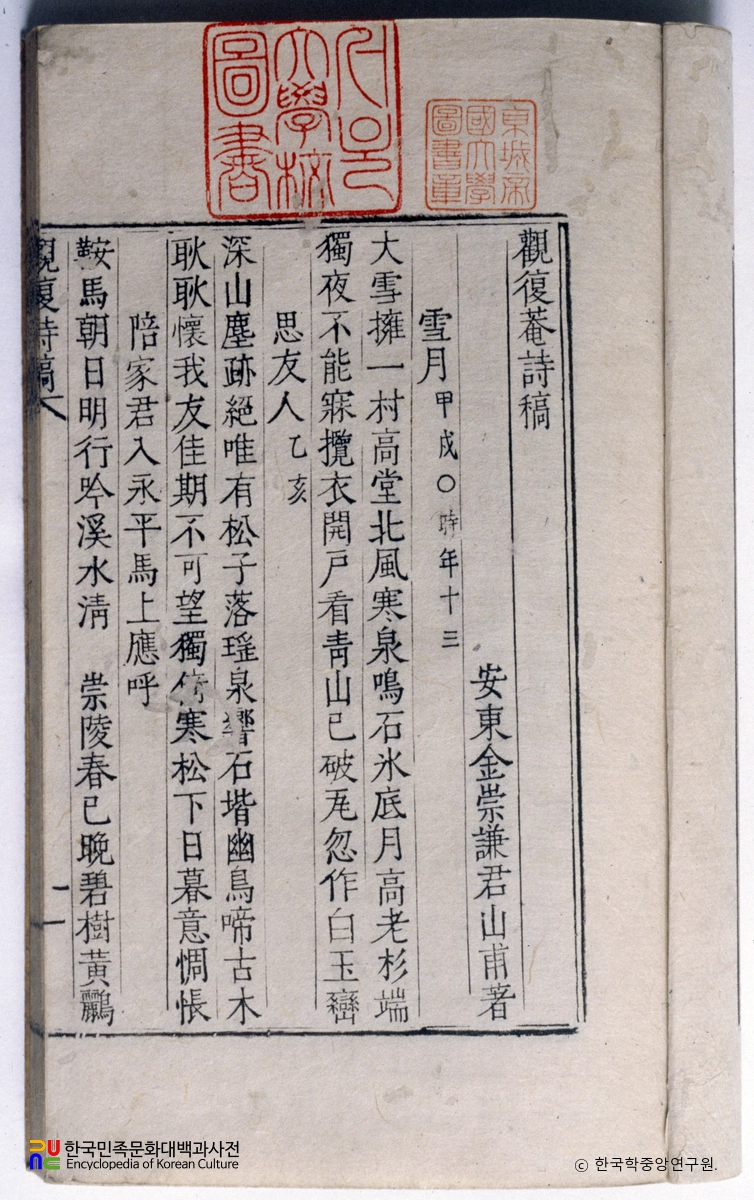 서울
大學校
圖書
東城帝
國大學
圖書章
觀復菴詩稿
安東金崇謙君山甫著
雪月 甲戌○時年十三
大雪擁一村高堂北風寒泉鳴石氷底月高老杉端
獨夜不能寐攬衣開戶看靑山已破瓦忽作白玉巒
思友人 乙亥
深山塵跡絕唯有松子落瑶泉響石堦幽鳥啼古木
耿耿懷我友佳期不可望獨倚寒松下日暮意惆悵
陪家君入永平馬上應呼
鞍馬朝日明行吟溪水淸 崇陵春已晩碧樹黃鸝
觀復詩稿
一
한국민족문화대백과사전
Encyclopedia of Korean Culture
© 한국학중앙연구원.